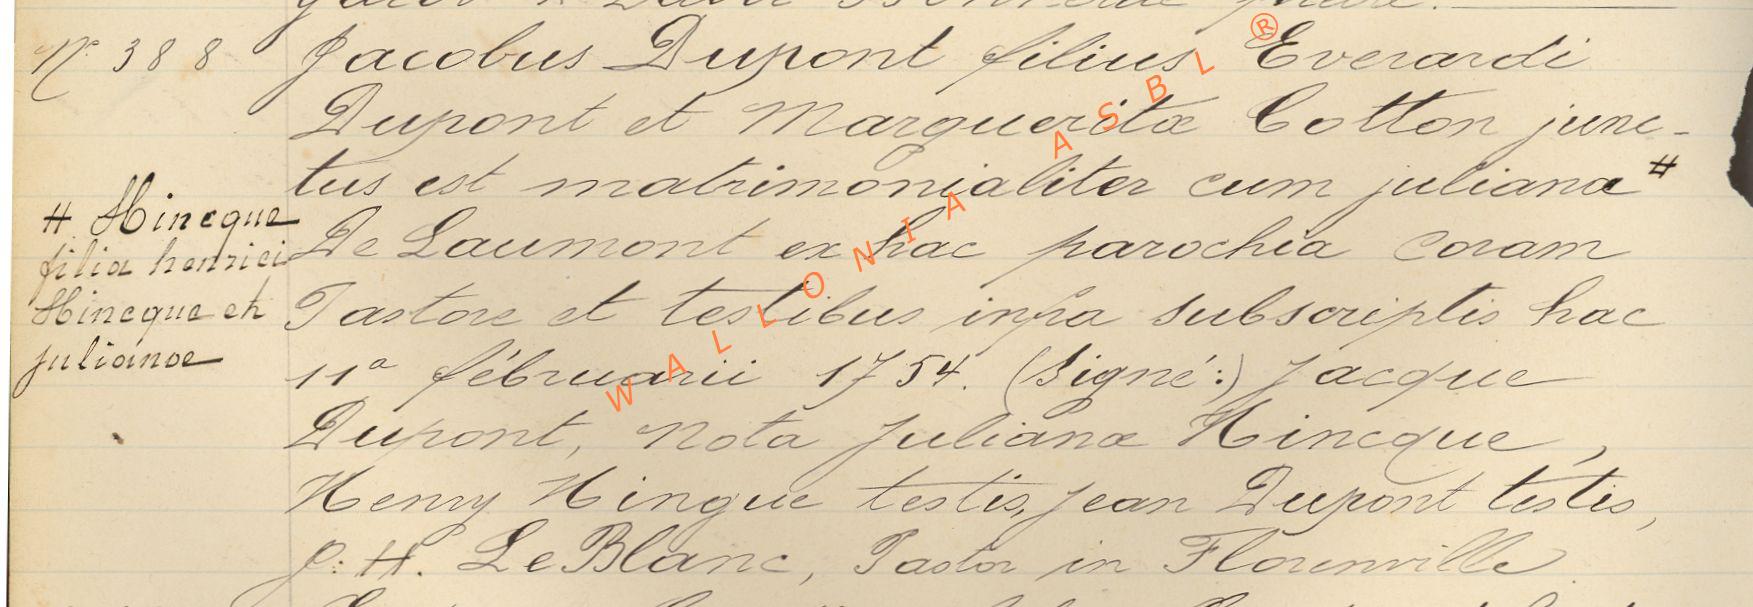 N° 388 Jacobus Dupont filius Everardi
Dupont et Margueritæ Cotton junc-
tus est matrimonialiter cum juliana #
# Hincque
filia henrici
Hincque et
julianæ
De Laumont ex hac parochia coram
Pastore et testibus infra subscriptis hac
11ª fébruarii 1754. (Signé:) Jacque
Dupont, Nota Julianæ Hincque,
Henry Hingue testis, Jean Dupont testis,
J: H. Le Blanc, Pastor in Florenville
WALLONIA ASBL ®